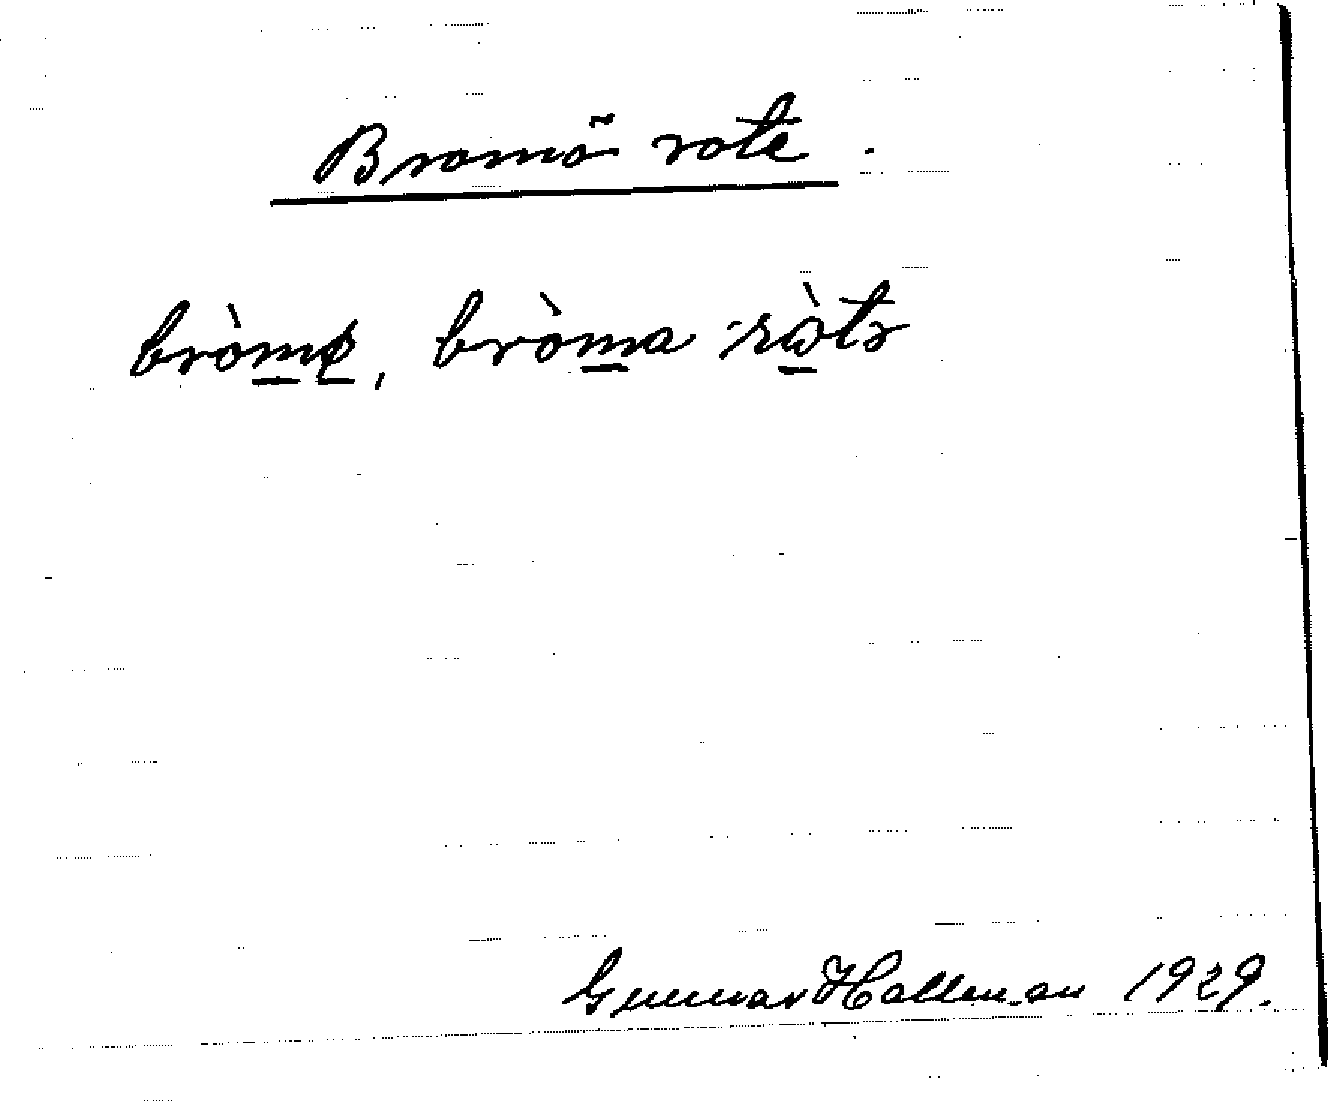 Bromö rote.
bròmø, bròma ràtə
Gunnar Hallman 1929.